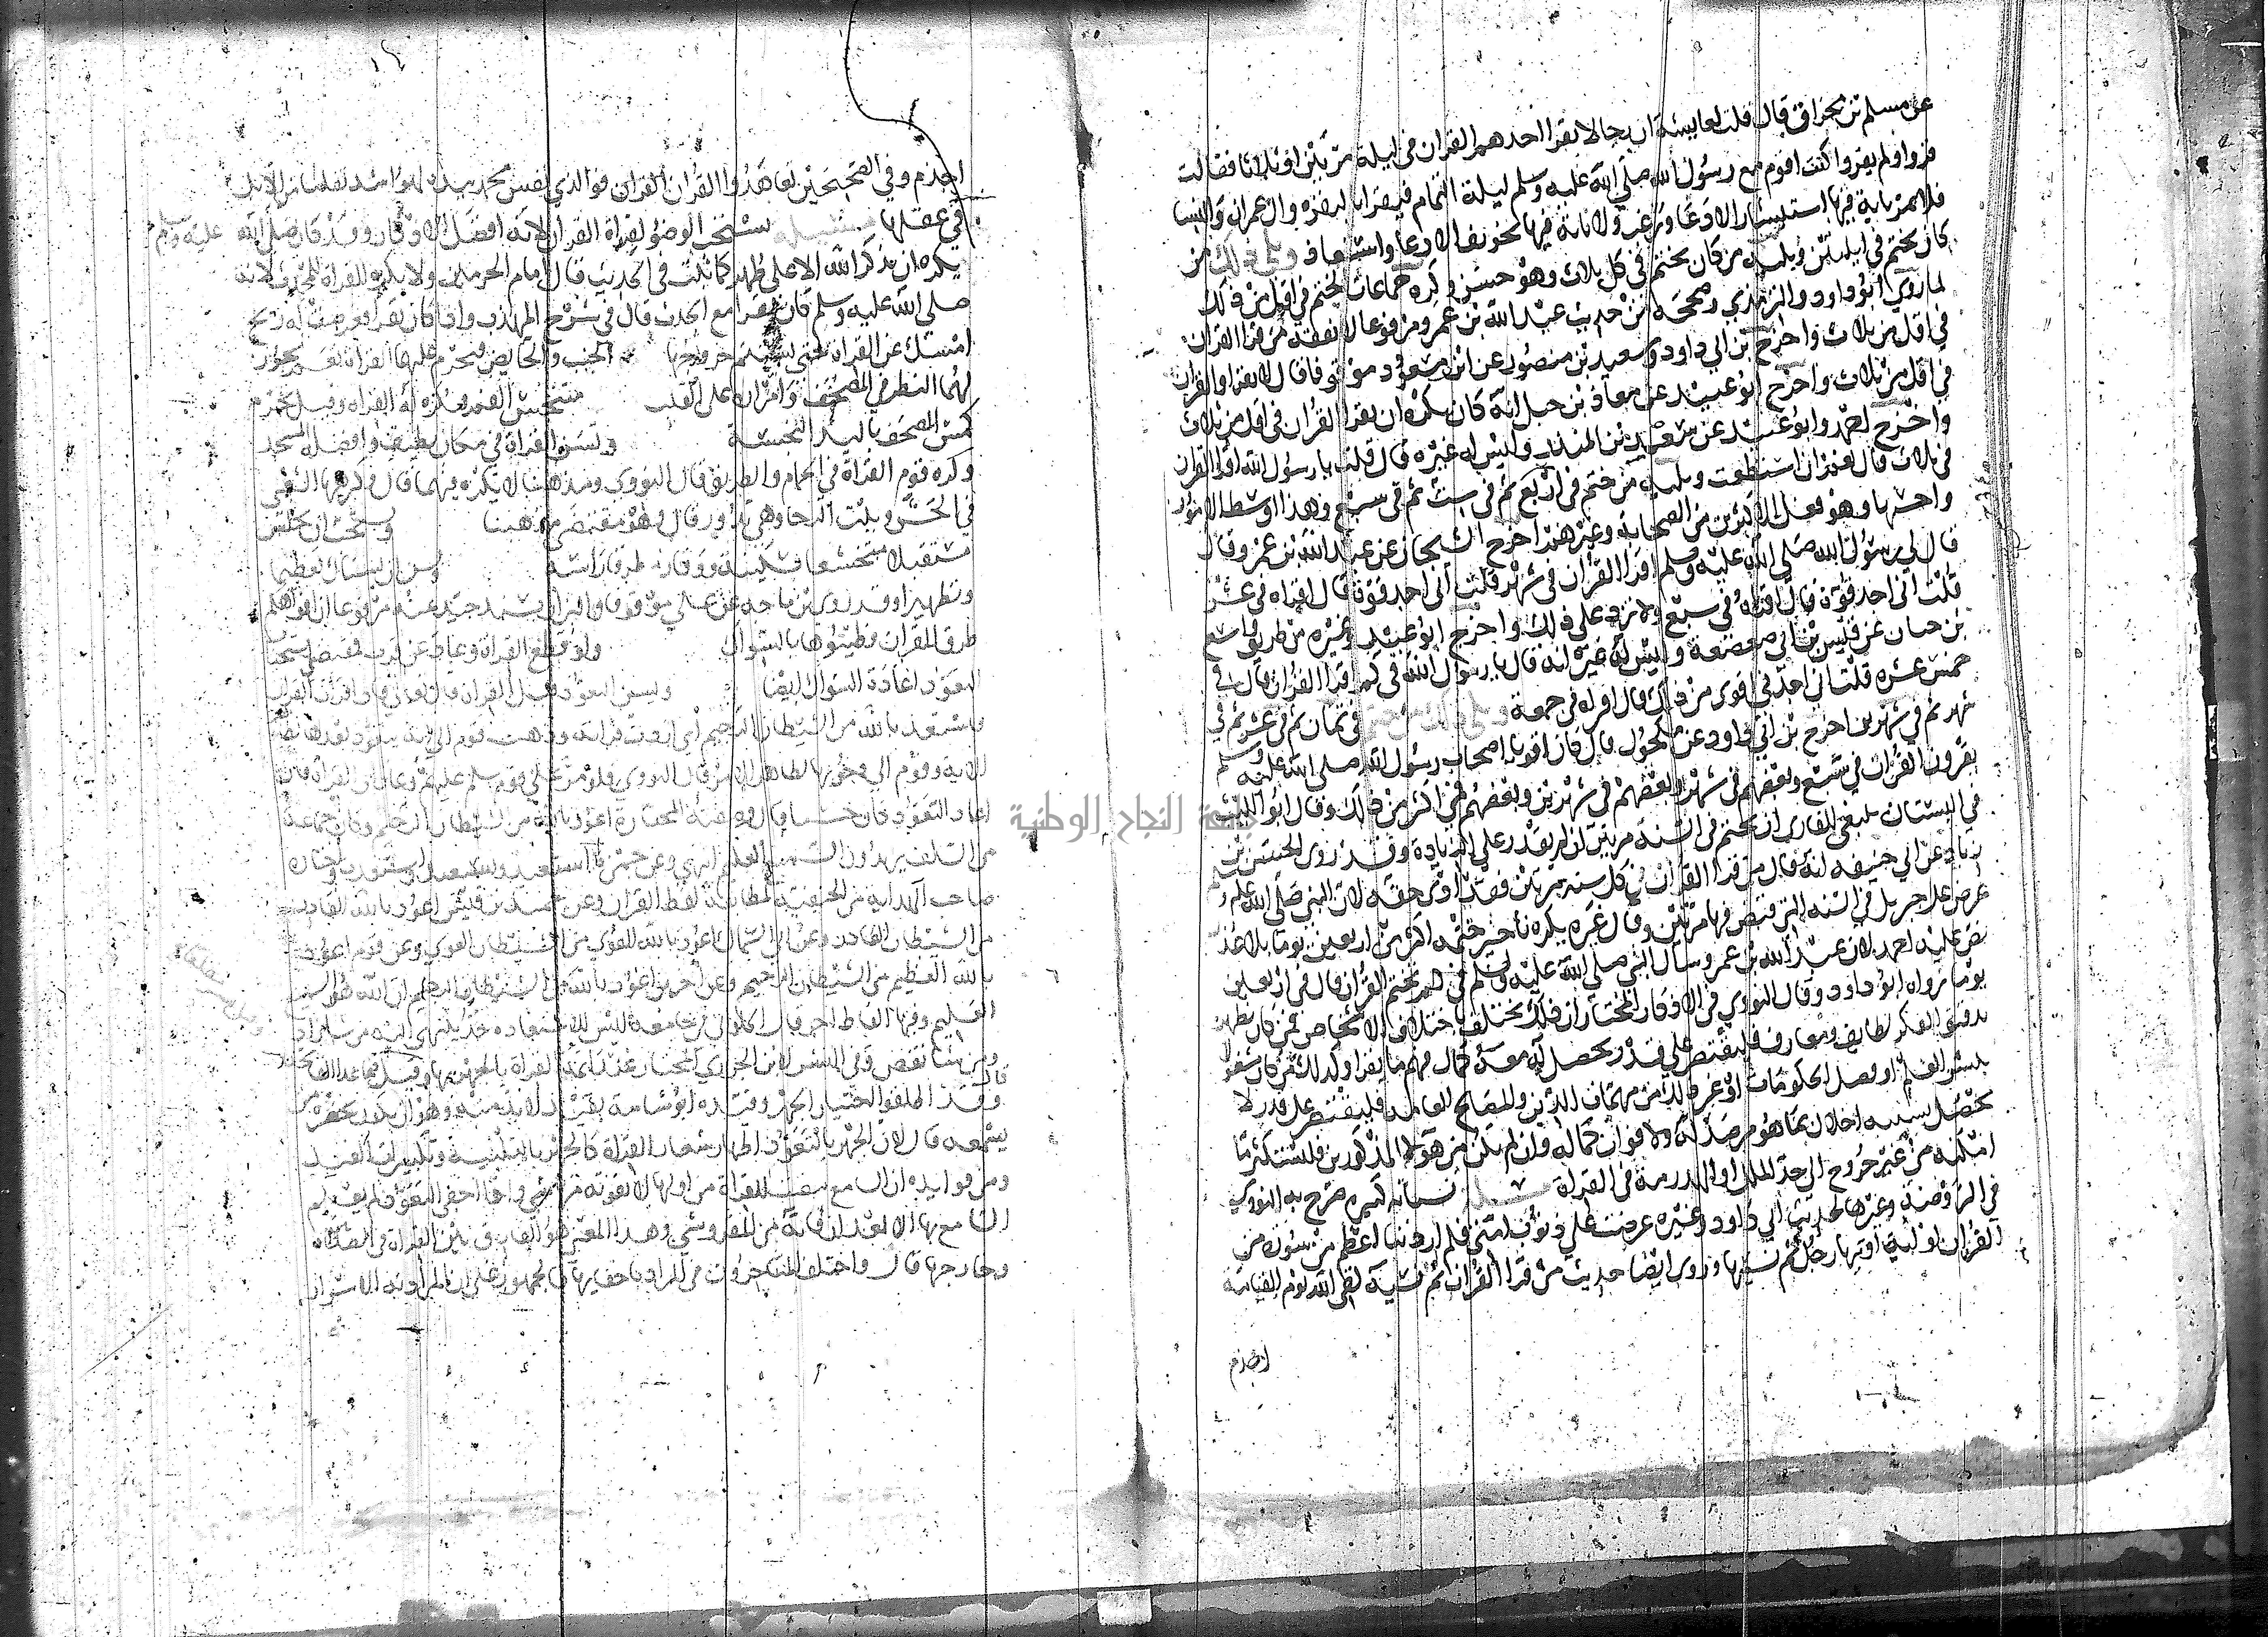 عن مسلم بن مخراق قال قلت لعايشة ان رجالا يقرا احدهم القران في ليلة مرتين او ثلاثا فقالت
قروا ولم يقروا كنت اقوم مع رسول الله صلى الله عليه وسلم ليلة التمام فيقرا بالبقره وال عمران والنسا
فلا يمر باية فيها استبشار الا دعا ورغب ولا باية فيها تخويف الا دعا واستعاذ ويلي ذلك من
كان يختم في ليلتين ويليه من كان يختم في كل ثلاث وهو حسن وكره جماعات الختم في اقل من ذلك
لما روي ابو داود والترمذي وصححه من حديث عبد الله بن عمرو مرفوعا لا يفقه من قرا القران
في اقل من ثلاث واخرج بن ابي داود وسعيد بن منصور عن ابن مسعود موقوفا قال لا تقراوا القران
في اقل من ثلاث واخرج ابو عبيد عن معاذ بن جبل انه كان يكره ان يقرا القران في اقل من ثلاث
واخرج احمد وابو عبيد عن سعيد بن المنذر وليس له غيره قال قلت يا رسول الله اقرا القران
في ثلاث قال نعم ان استطعت ويليه من ختم في اربع ثم في ست ثم في سبع وهذا اوسط الامور
واحسنها وهو فعل الاكثرين من الصحابة وغيرهم اخرج الشيخان عن عبد الله بن عمرو قال
قال لي رسول الله صلى الله عليه وسلم اقرا القران في شهر قلت اني اجد قوة قال اقراه في عشر
قلت اني اجد قوة قال اقراه في سبع ولا تزد على ذلك واخرج ابو عبيد وغيره من طريق واسع
بن حبان عن قيس بن ابي صعصعة وليس له غيره انه قال يا رسول الله في كم اقرا القران قال في
خمس عشره قلت اني اجدني اقوى من ذلك قال اقراه في جمعة ويلي ذلك من ختم في ثمان ثم في عشر ثم في
شهر ثم في شهرين اخرج بن ابي داود عن مكحول قال كان اقويا اصحاب رسول الله صلى الله عليه وسلم
يقرون القران في سبع وبعضهم في شهر وبعضهم في شهرين وبعضهم في اكثر من ذلك وقال ابو الليث
في البستان ينبغي للقاري ان يختم في السنة مرتين ان لم يقدر على الزيادة وقد روى الحسن بن
زياد عن ابي حنيفه انه قال من قرا القران في كل سنه مرتين فقد ادى حقه لان النبي صلى الله عليه وسلم
عرض على جبريل في السنه التي قبض فيها مرتين وقال غيره يكره تأخير ختمه اكثر من اربعين يوما بلا عذر
نص عليه احمد لان عبد الله بن عمرو سال النبي صلى الله عليه وسلم في كم نختم القران قال في اربعين
يوما رواه ابو داود وقال النووي في الاذكار المختار ان ذلك يختلف باختلاف الاشخاص فمن كان يظهر له
بدقيق الفكر لطايف ومعارف فليقتصر على قدر يحصل له معه كمال فهم ما يقرا وكذلك من كان مشغولا
بنشر العلم او فصل الحكومات او غير ذلك من مهمات الدين والمصالح العامه فليقتصر على قدر لا
يحصل بسببه اخلال بما هو مرصد له ولا فوات كماله وان لم يكن من هؤلا المذكورين فليستكثر ما
امكنه من غير خروج الى حد الملل او الهدرمة في القراة مسئلة نسيانه كبيره صرح به النووي
في الروضة وغيرها لحديث ابي داود وغيره عرضت علي ذنوب امتي فلم ار ذنبا اعظم من سورة من
القران او اية اوتيها رجل ثم نسيها وروى ايضا حديث من قرا القران ثم نسيه لقي الله يوم القيامة
اجذم
اجذم وفي الصحيحين تعاهدوا القران فوالذي نفس محمد بيده لهو اشد تفلتا من الابل
في عقلها مسئلة يستحب الوضو لقراة القران لانه افضل الاذكار وقد كان صلى الله عليه وسلم
يكره ان يذكر الله الا على طهر كما ثبت في الحديث قال امام الحرمين ولا يكره القراة للمحدث لانه
صلى الله عليه وسلم كان يقرا مع الحدث قال في شرح المهذب واذا كان يقرا فعرضت له ريح
امسك عن القراة حتى يستتم خروجها اما الجنب والحايض فتحرم عليهما القراة نعم يجوز
لهما النظر في المصحف وامراره على القلب متنجس الفم فتكره له القراة وقيل تحرم
كمس المصحف باليد النجسة وتسن القراة في مكان نظيف وافضله المسجد
وكره قوم القراة في الحمام والطريق قال النووي ومذهبنا لا تكره فيهما قال وكرهها الشعبي
في الحش وبيت الرحا وهي تدور قال وهو مقتضى مذهبنا ويستحب ان يجلس
مستقبلا متخشعا بسكينة ووقار مطرقا راسه ويسن ان يستاك تعظيما
وتطهيرا وقد روى بن ماجه عن علي موقوفا والبزار بسند جيد عنه مرفوعا ان افواهكم
طرق للقران فطيبوها بالسواك ولو قطع القراة وعاد عن قرب فمقتضى استحباب
التعوذ اعادة السواك ايضا ويسن التعوذ قبل القران قال تعالى فاذا قرات القران
فاستعذ بالله من الشيطان الرجيم أي اردت قراته وذهب قوم الى انه يتعوذ بعدها لظاهر
الاية وقوم الى وجوبها لظاهر الامر قال النووي فلو مر على قوم سلم عليهم وعاد الى القراة فان
اعاد التعوذ كان حسنا قال وصفته المختارة اعوذ بالله من الشيطان الرجيم وكان جماعة
من السلف يزيدون السميع العليم انتهى وعن حمزة استعيذ ونستعيذ واستعذت واختاره
صاحب الهدايه من الحنفية لمطابقة لفظ القران وعن حميد بن قيس اعوذ بالله القادر
من الشيطان الغادر وعن ابي السمال اعوذ بالله القوي من الشيطان الغوي وعن قوم اعوذ
بالله العظيم من الشيطان الرجيم وعن اخرين اعوذ بالله من الشيطان الرجيم ان الله هو السميع
العليم وفيها الفاظ اخر قال الحلواني في جامعه ليس للاستعاذه حد ينتهى اليه من شا زاد
ومن شا نقص وفي النشر لابن الجزري المختار عند ايمة القراة الجهر بها وقيل
قال وقد اطلقوا اختيار الجهر وقيده ابو شامة بقيد لا بد منه وهو ان يكون بحضرة من
يسمعه قال لان الجهر بالتعوذ اظهار شعار القراة كالجهر بالتلبية وتكبيرات العيد
ومن فوايده ان السامع ينصت للقراة من اولها لا يفوته منها شي واذا اخفى التعوذ لم يعلم
السامع بها الا بعد ان فاته من المقرو شي وهذا المعنى هو الفارق بين القراة في الصلاه
وخارجها قال واختلف المتاخرون في المراد باخفايها فالجمهور على ان المراد به الاسرار
جامعة النجاح الوطنية